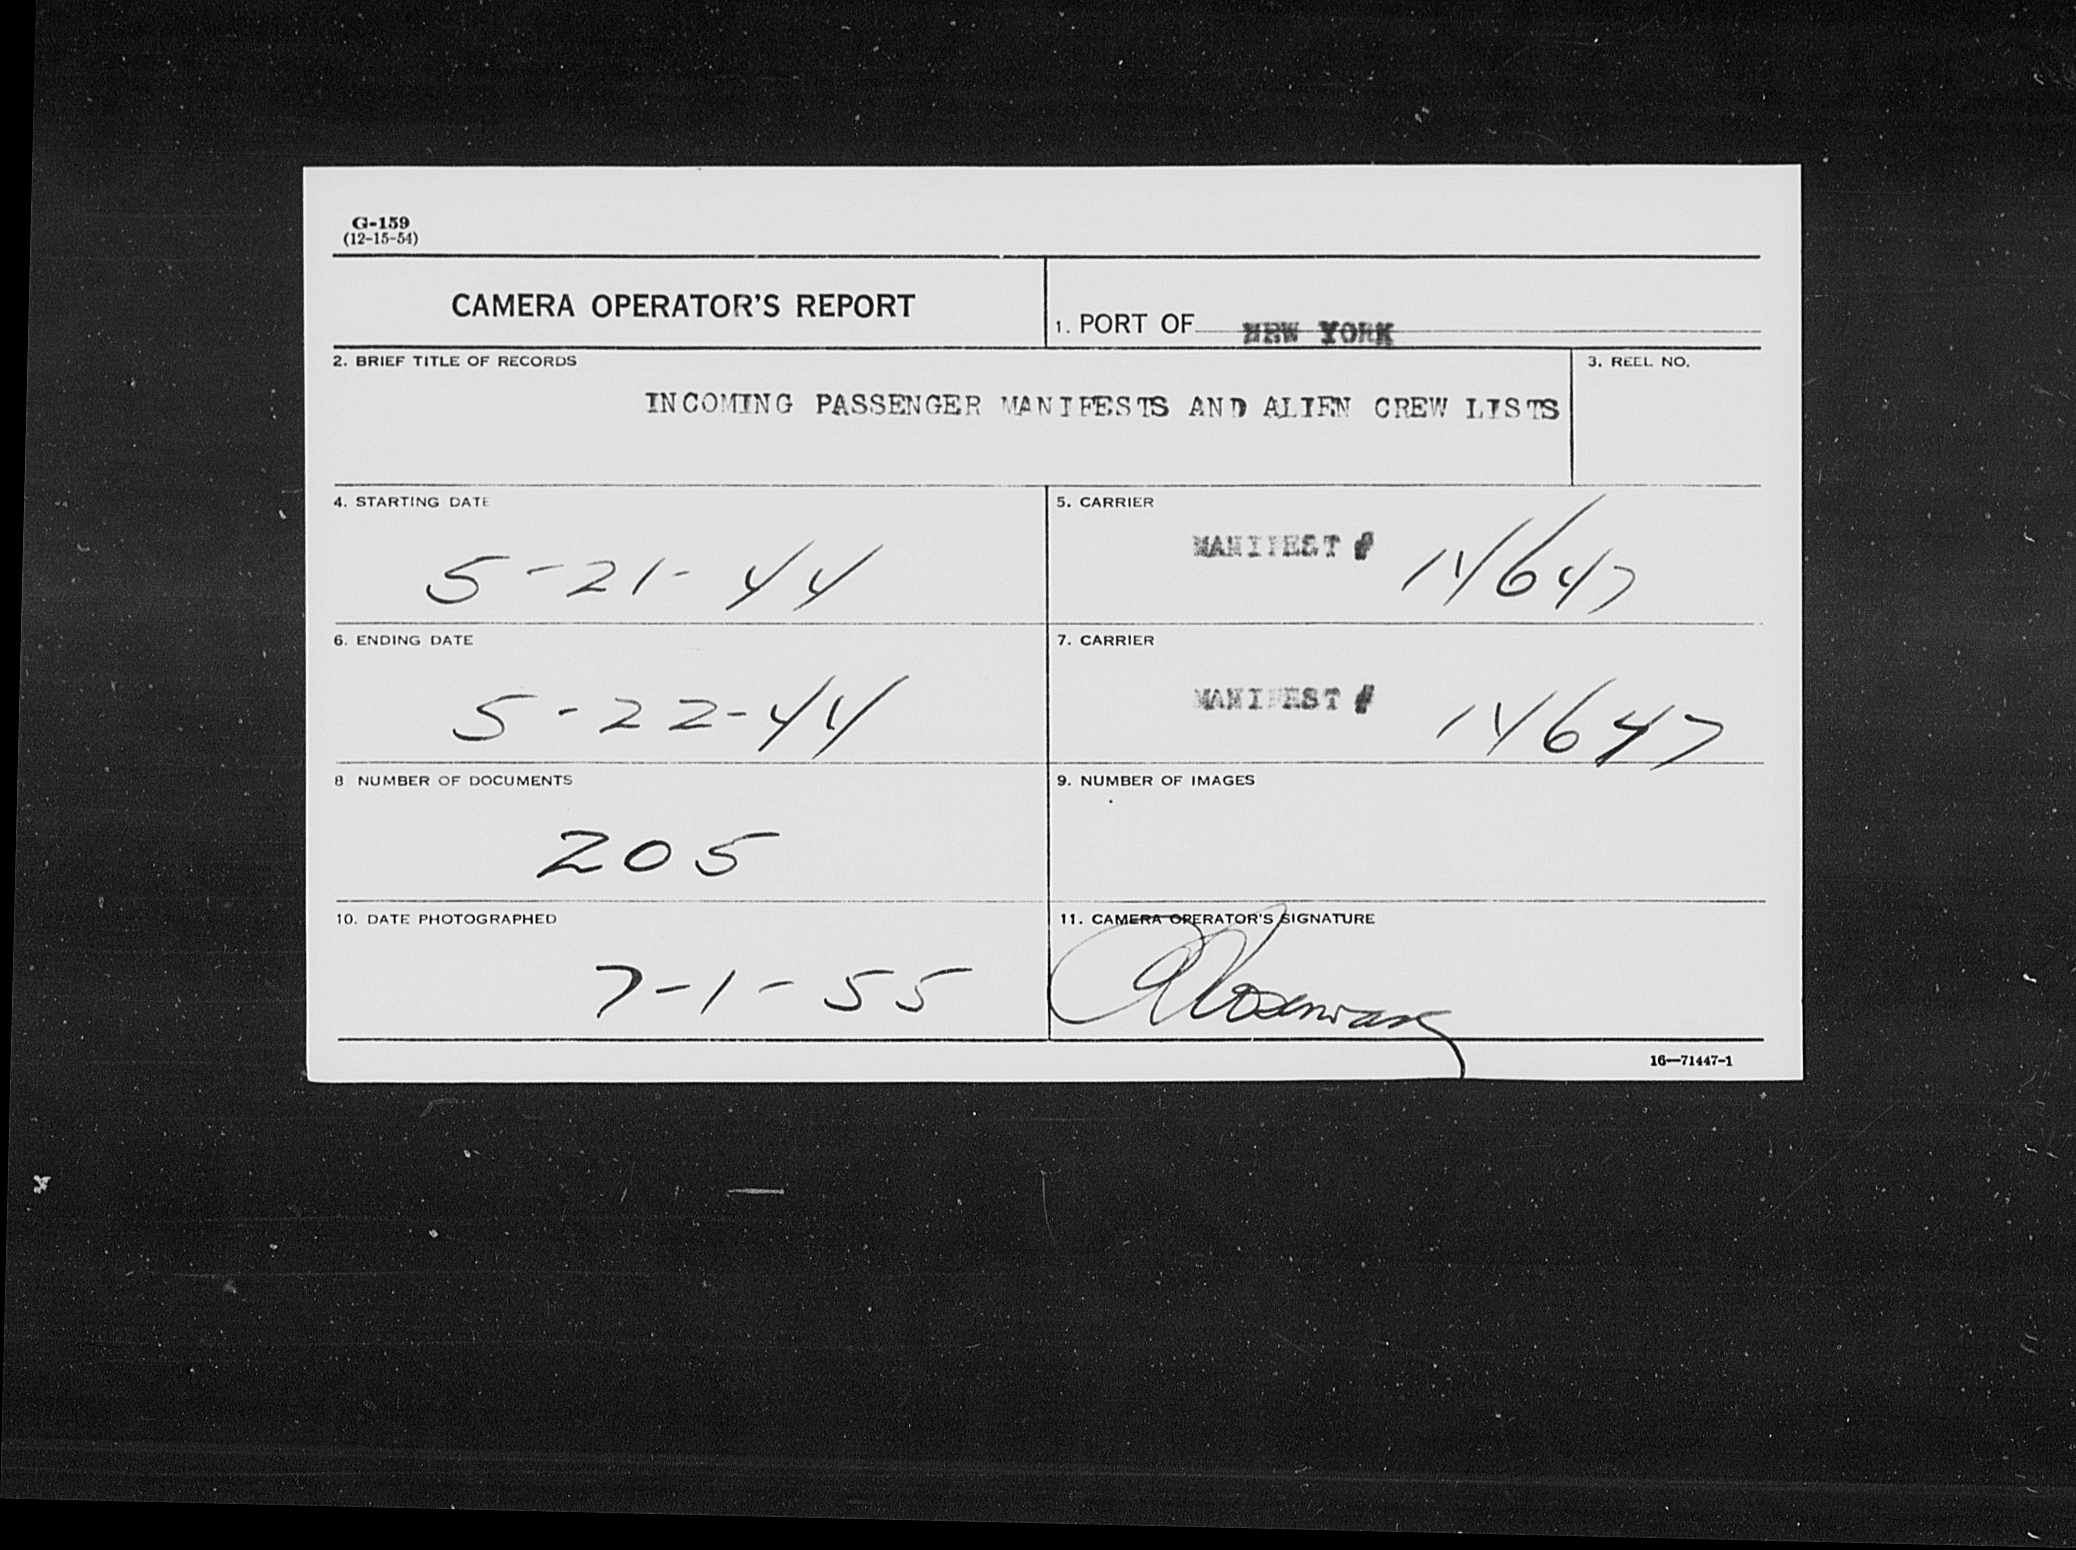 G-159
(12-15-54)
CAMERA OPERATOR'S REPORT
1. PORT OF NEW YORK
2. BRIEF TITLE OF RECORDS
3. REEL NO.
INCOMING PASSENGER MANIFESTS AND ALIEN CREW LISTS
4. STARTING DATE
5. CARRIER
5-21-44
MANIFEST # 14647
6. ENDING DATE
7. CARRIER
5-22-44
MANIFEST # 14647
8 NUMBER OF DOCUMENTS
9. NUMBER OF IMAGES
205
10. DATE PHOTOGRAPHED
11. CAMERA OPERATOR'S SIGNATURE
7-1-55
16—71447-1